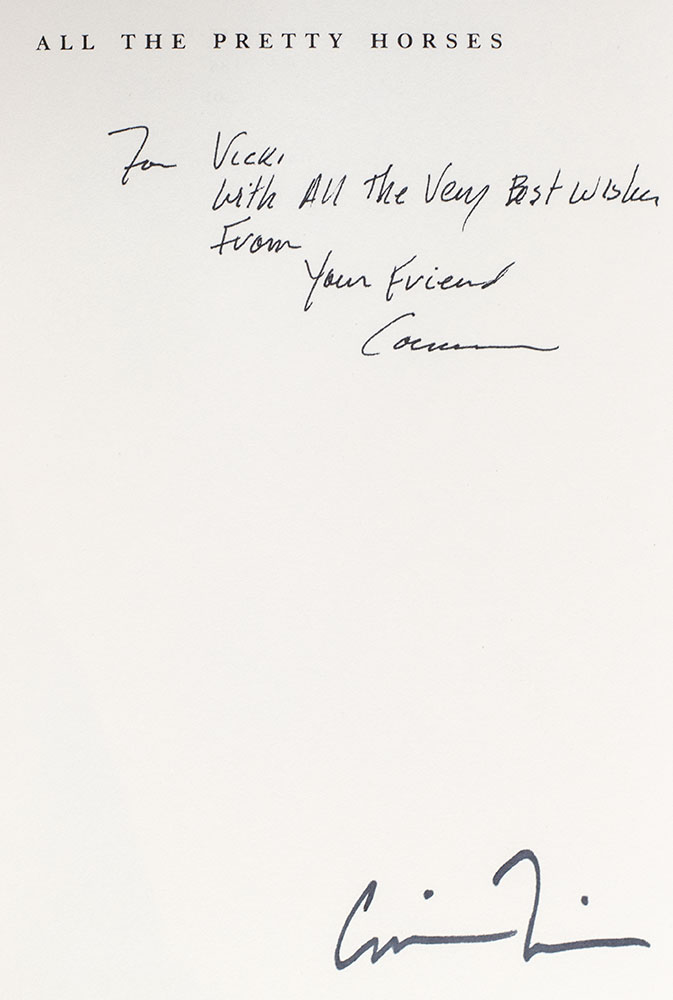 ALL THE PRETTY HORSES
For Vicki
With All The Very Best Wishes
From
Your Friend
Cormac